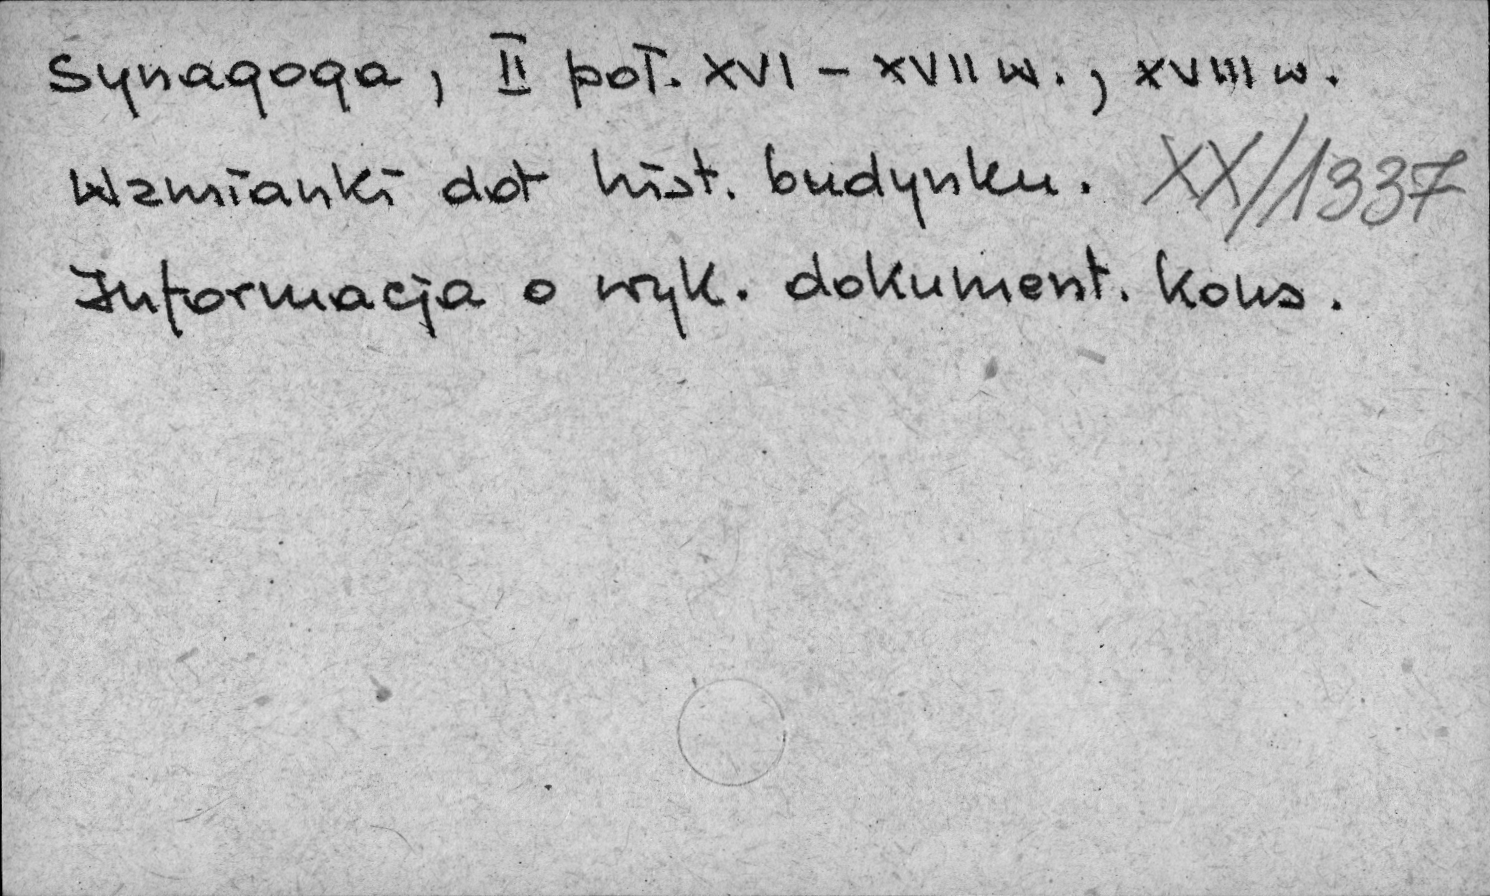 Synagoga, II poł. XVI – XVII w., XVIII w.
Wzmianki dot hist. budynku. XX/1337
Informacja o wyk. dokument. kons.